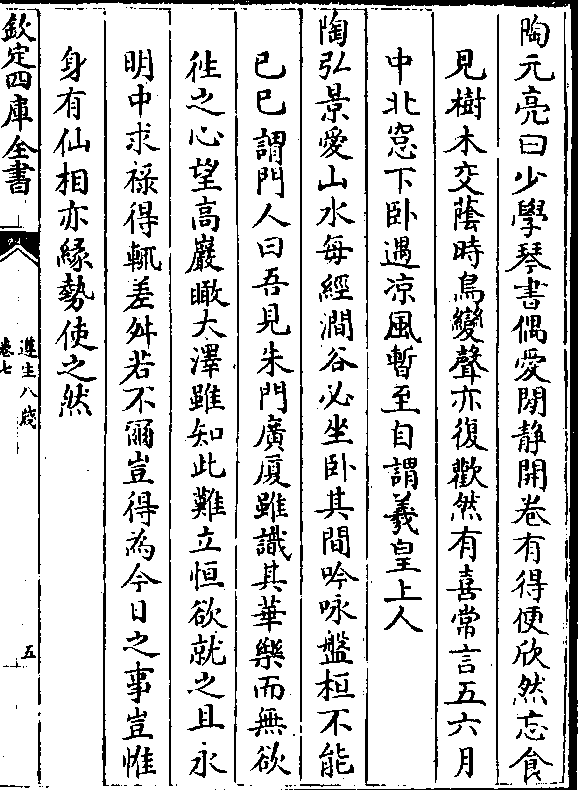 陶元亮曰少學琴書偶愛閒静開卷有得便欣然忘食
見樹木交蔭時鳥變聲亦復歡然有喜常言五六月
中北窓下卧遇凉風暫至自謂羲皇上人
陶弘景愛山水每經澗谷必坐卧其間吟咏盤桓不能
已已謂門人曰吾見朱門廣厦雖識其華樂而無欲
徃之心望高巖瞰大澤雖知此難立恒欲就之且永
明中求禄得輒差舛若不爾豈得為今日之事豈惟
身有仙相亦緣勢使之然
欽定四庫全書
遵生八牋
卷七
五